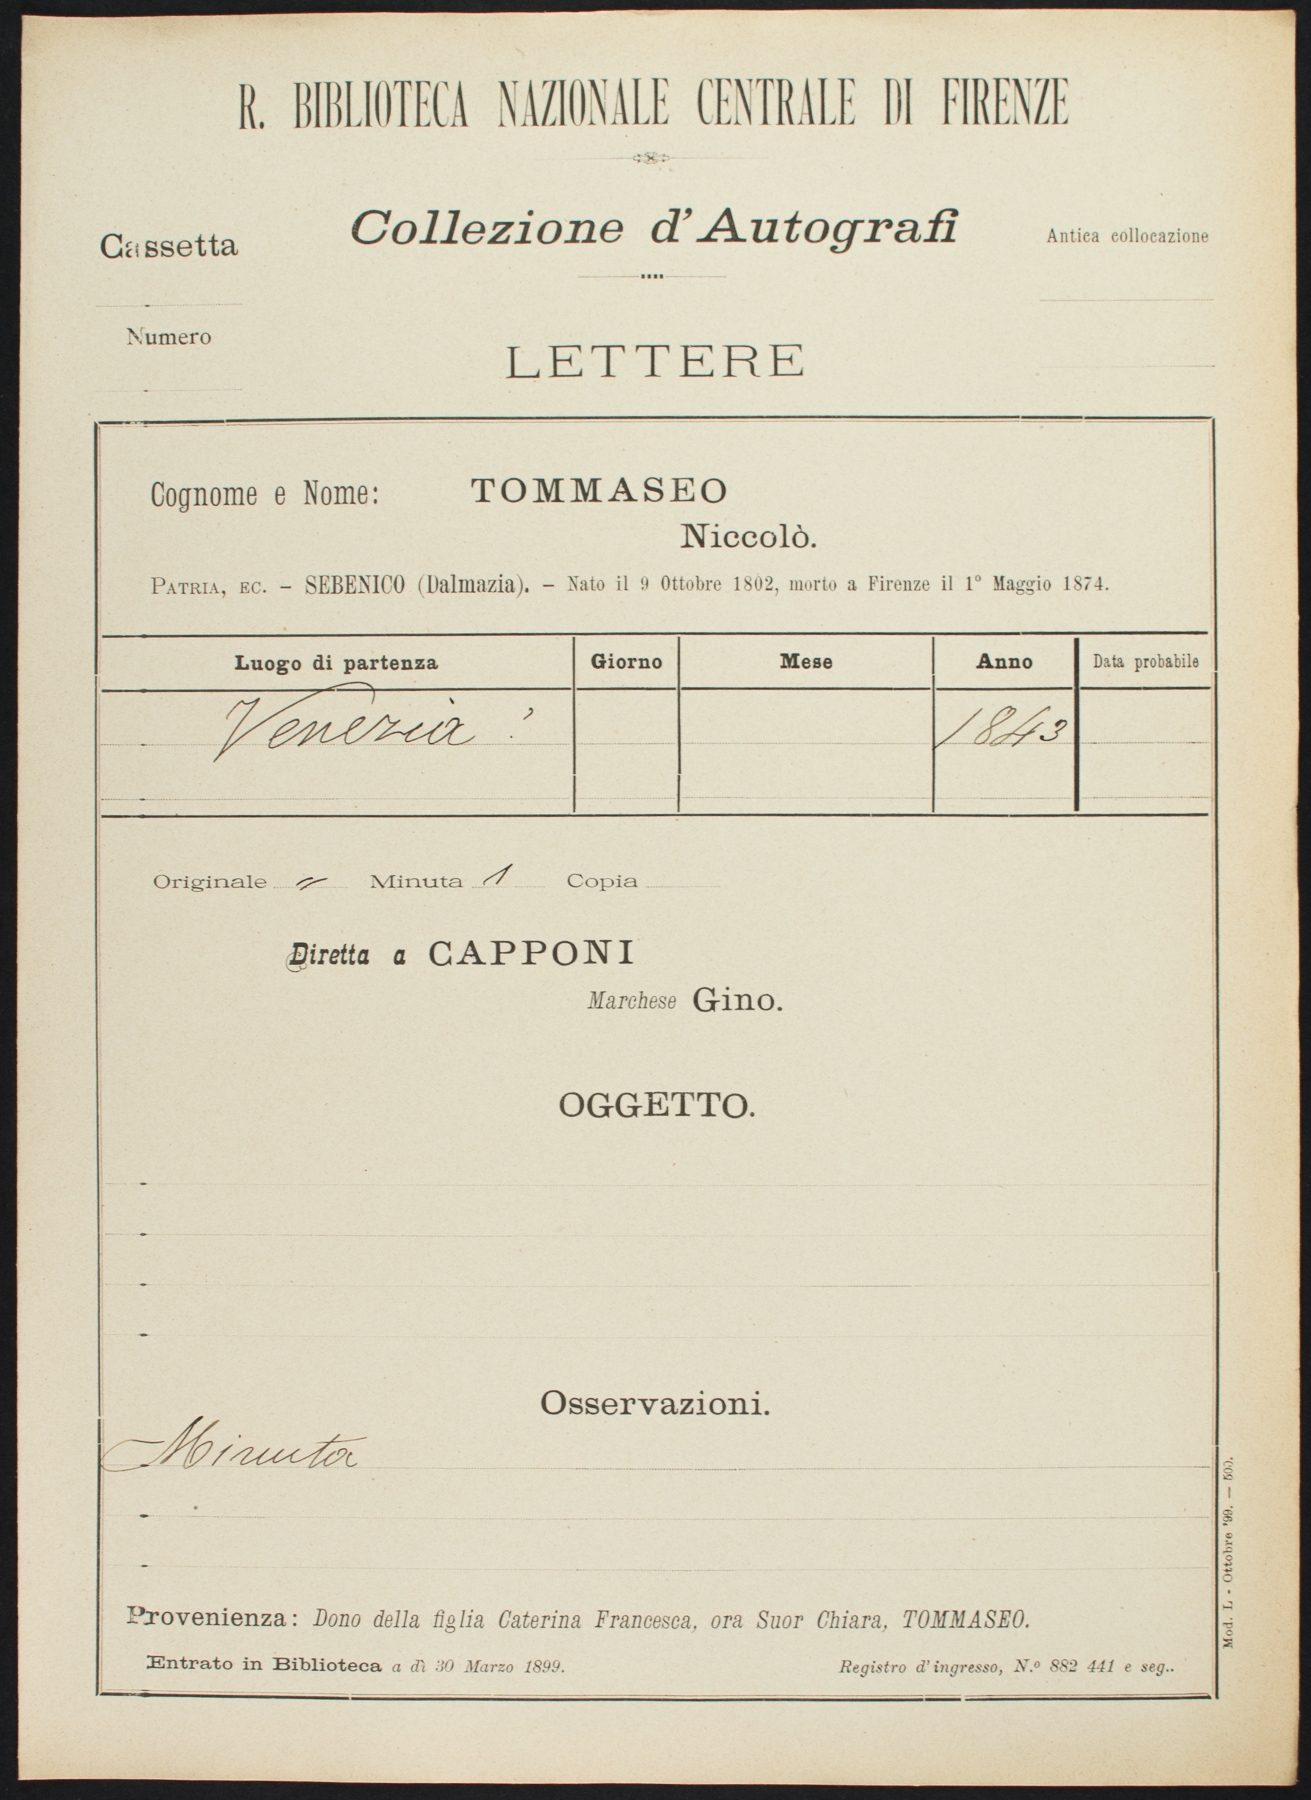 R. BIBLIOTECA NAZIONALE CENTRALE DI FIRENZE
Cassetta
Collezione d'Autografi
Antica collocazione
Numero
LETTERE
Cognome e Nome: TOMMASEO
Niccolò.
PATRIA, EC. – SEBENICO (Dalmazia). – Nato il 9 Ottobre 1802, morto a Firenze il 1º Maggio 1874.
Luogo di partenza Giorno Mese Anno Data probabile
Venezia ? 1843
Originale " Minuta 1 Copia
Diretta a CAPPONI
Marchese Gino.
OGGETTO.
Osservazioni.
Minuta
Provenienza: Dono della figlia Caterina Francesca, ora Suor Chiara, TOMMASEO.
Entrato in Biblioteca a dì 30 Marzo 1899. Registro d'ingresso, N.º 882 441 e seg..
Mod. L - Ottobre '99. — 500.